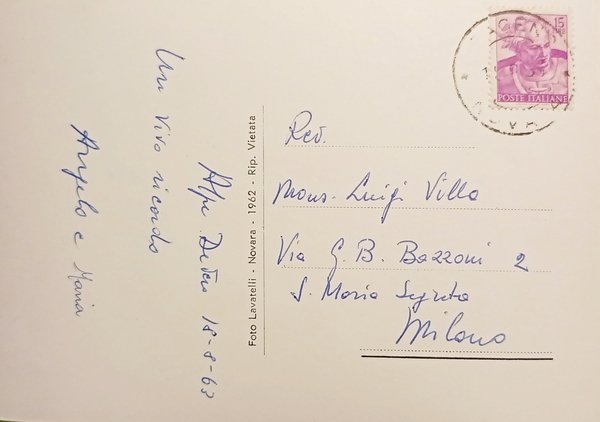 Un vivo ricordo
Angelo e Maria
Alpe Devero 18-8-63
Foto Lavatelli - Novara - 1962 - Rip. Vietata
15
POSTE ITALIANE
Rev.
Mons. Luigi Villa
Via G. B. Bazzoni 2
S. Maria Segreta
Milano